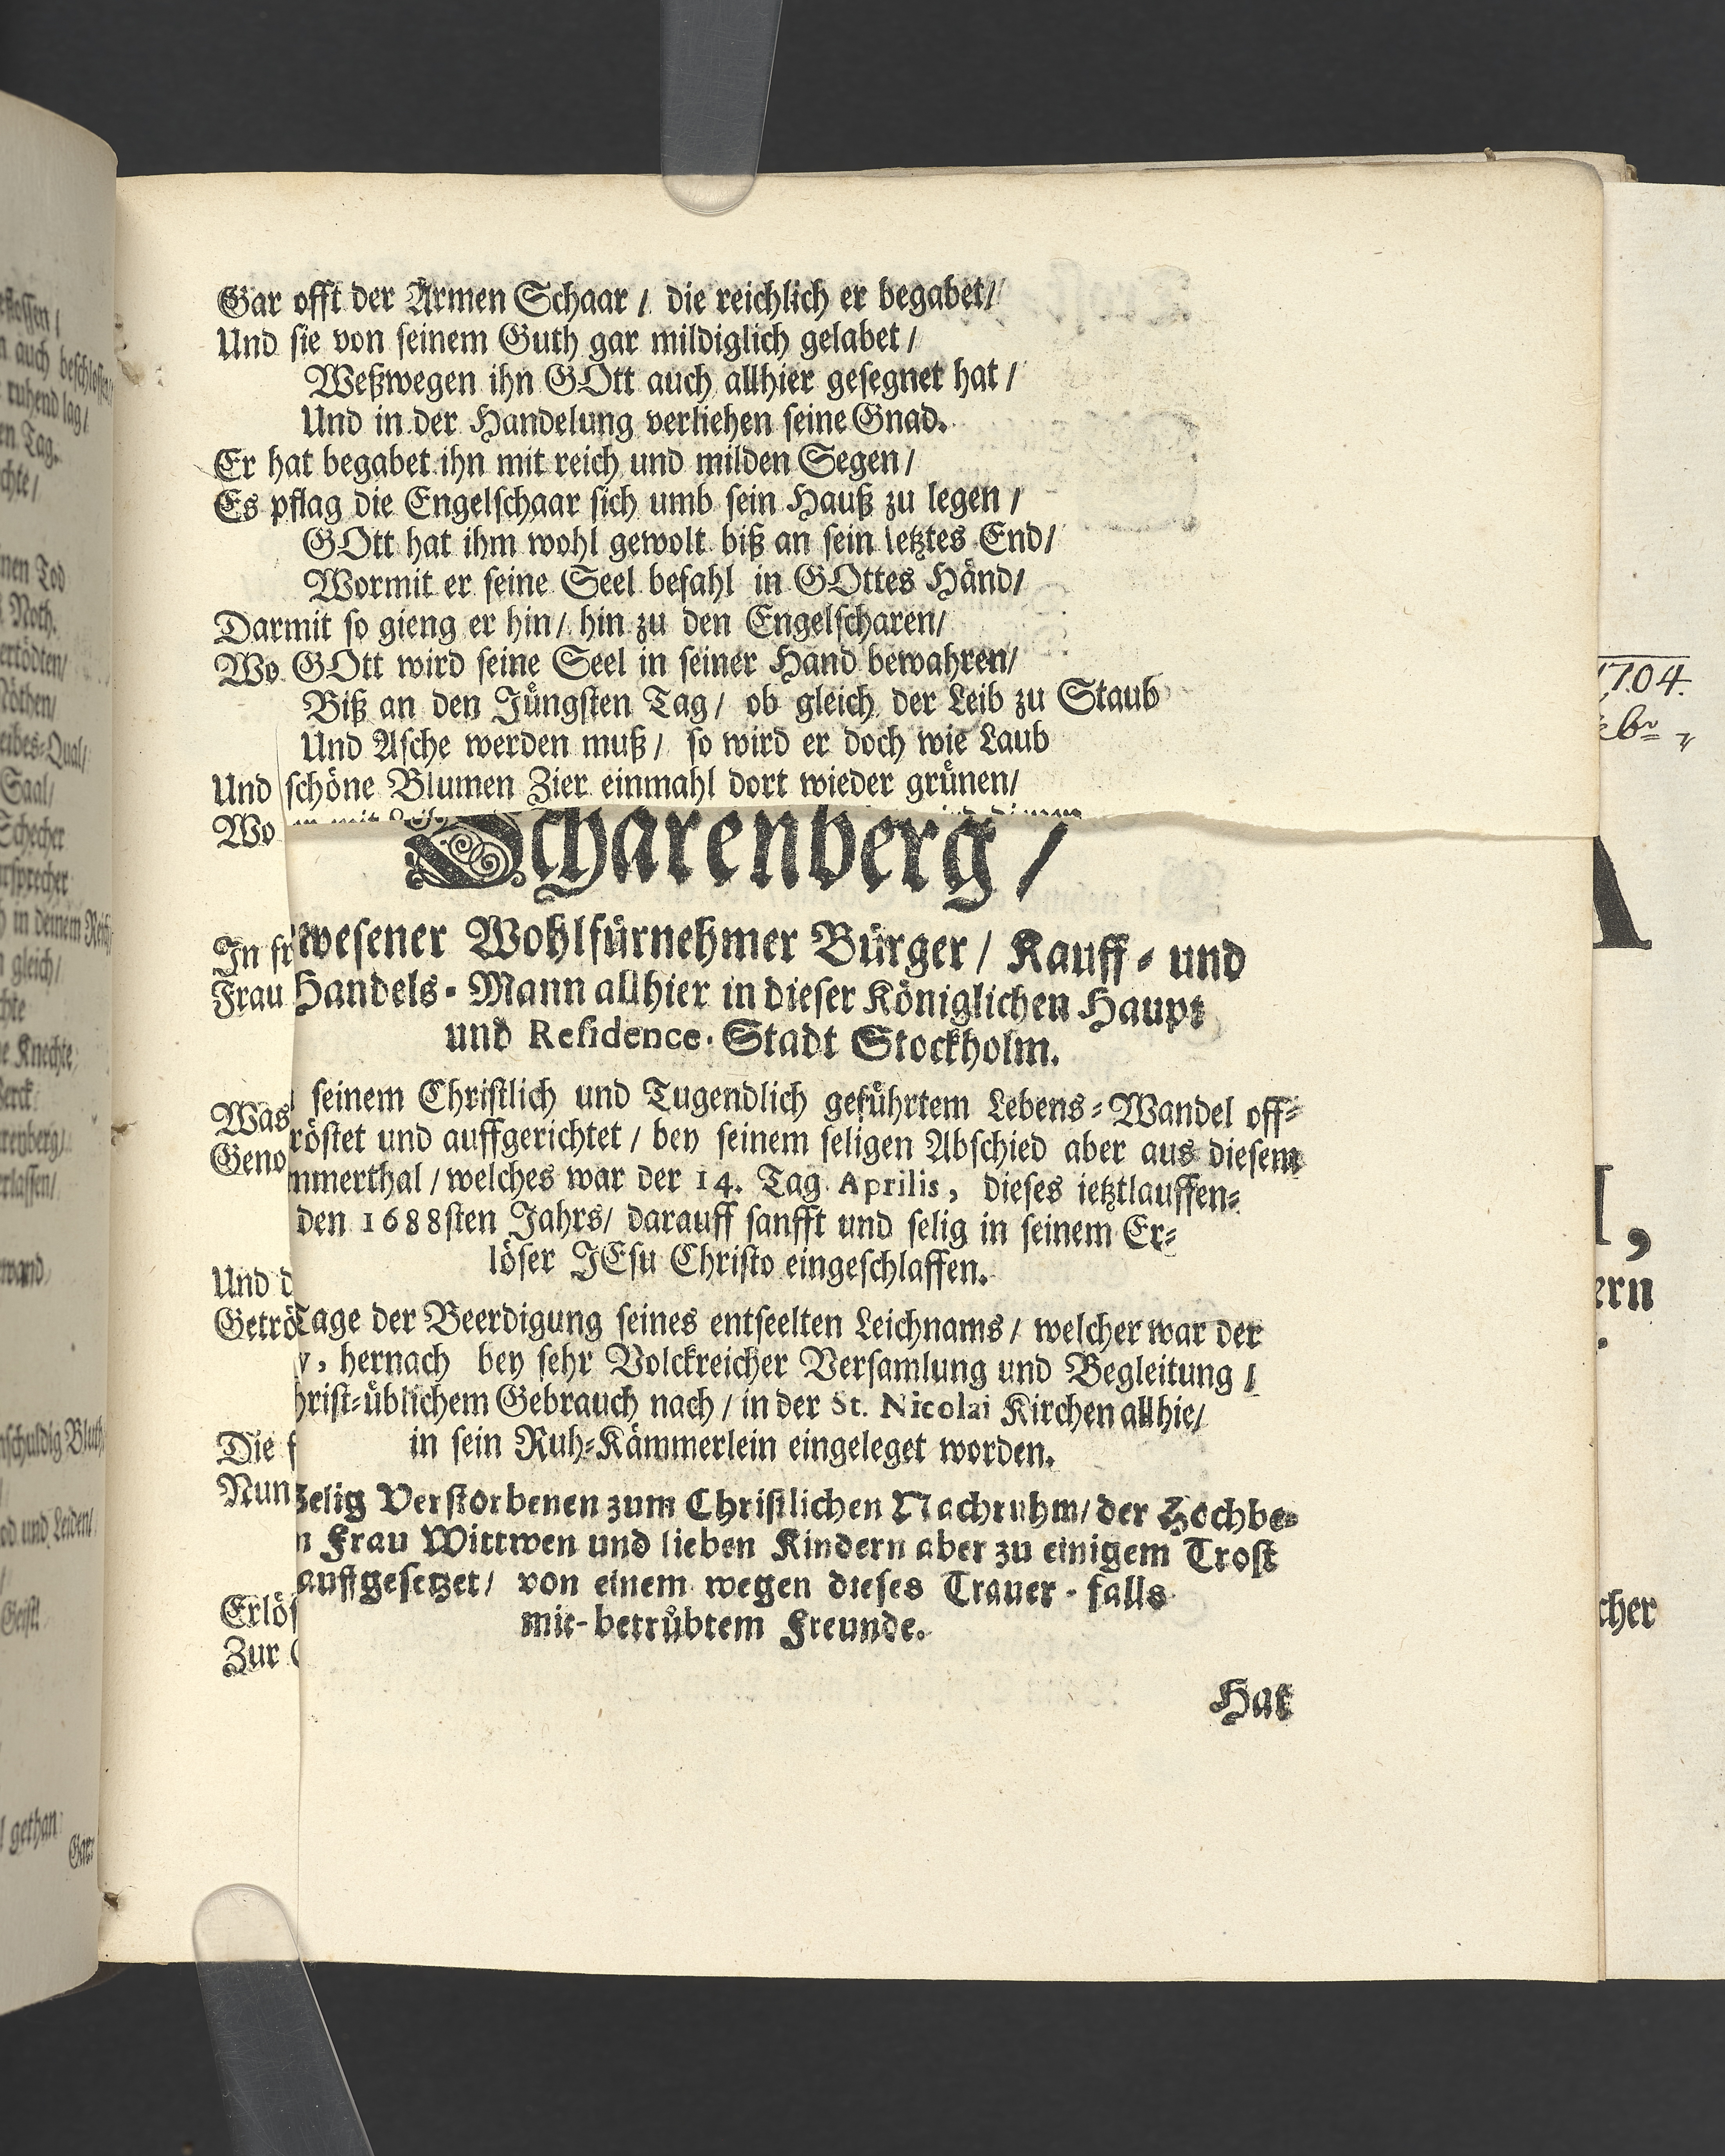 Gar offt der Armen Schaar / die reichlich er begabet /
Und sie von seinem Guth gar mildiglich gelabet /
Weßwegen ihn GOtt auch allhier gesegnet hat /
Und in der Handelung verliehen seine Gnad.
Er hat begabet ihn mit reich und milden Segen /
Es pflag die Engelschaar sich umb sein Hauß zu legen /
GOtt hat ihm wohl gewolt biß an sein letztes End /
Wormit er seine Seel befahl in GOttes Händ /
Darmit so gieng er hin / hin zu den Engelscharen /
Wo GOtt wird seine Seel in seiner Hand bewahren /
Biß an den Jüngsten Tag / ob gleich der Leib zu Staub
Und Asche werden muß / so wird er doch wie Laub
Und schöne Blumen Zier einmahl dort wieder grünen /
Wo
Scharenberg /
In fr
wesener Wohlfürnehmer Bürger / Kauff- und
Frau
Handels-Mann allhier in dieser Königlichen Haupt
und Residence-Stadt Stockholm.
seinem Christlich und Tugendlich geführtem Lebens-Wandel off-
Was
röstet und auffgerichtet / bey seinem seligen Abschied aber aus diesem
Geno
mmerthal / welches war der 14. Tag Aprilis, dieses ietztlauffen-
den 1688sten Jahrs / darauff sanfft und selig in seinem Er-
löser JEsu Christo eingeschlaffen.
Und d
Getrö
Tage der Beerdigung seines entseelten Leichnams / welcher war der
y, hernach bey sehr Volckreicher Versamlung und Begleitung /
hrist-üblichem Gebrauch nach / in der St. Nicolai Kirchen allhie /
Die f
in sein Ruh-Kämmerlein eingeleget worden.
Nun
Selig Verstorbenen zum Christlichen Nachruhm / der Hochbe-
n Frau Wittwen und lieben Kindern aber zu einigem Trost
auffgesetzet / von einem wegen dieses Trauer-falls
Erlös
mit-betrübtem Freunde.
Zur
Hat
auch beschlossen /
ruhend lag /
Tag.
Tod
Noth.
Saal /
Schecher
in deinem
gleich /
Knechte
Bluth
und Leiden /
Geist
gethan
Gar
1704.
A
ern
cher